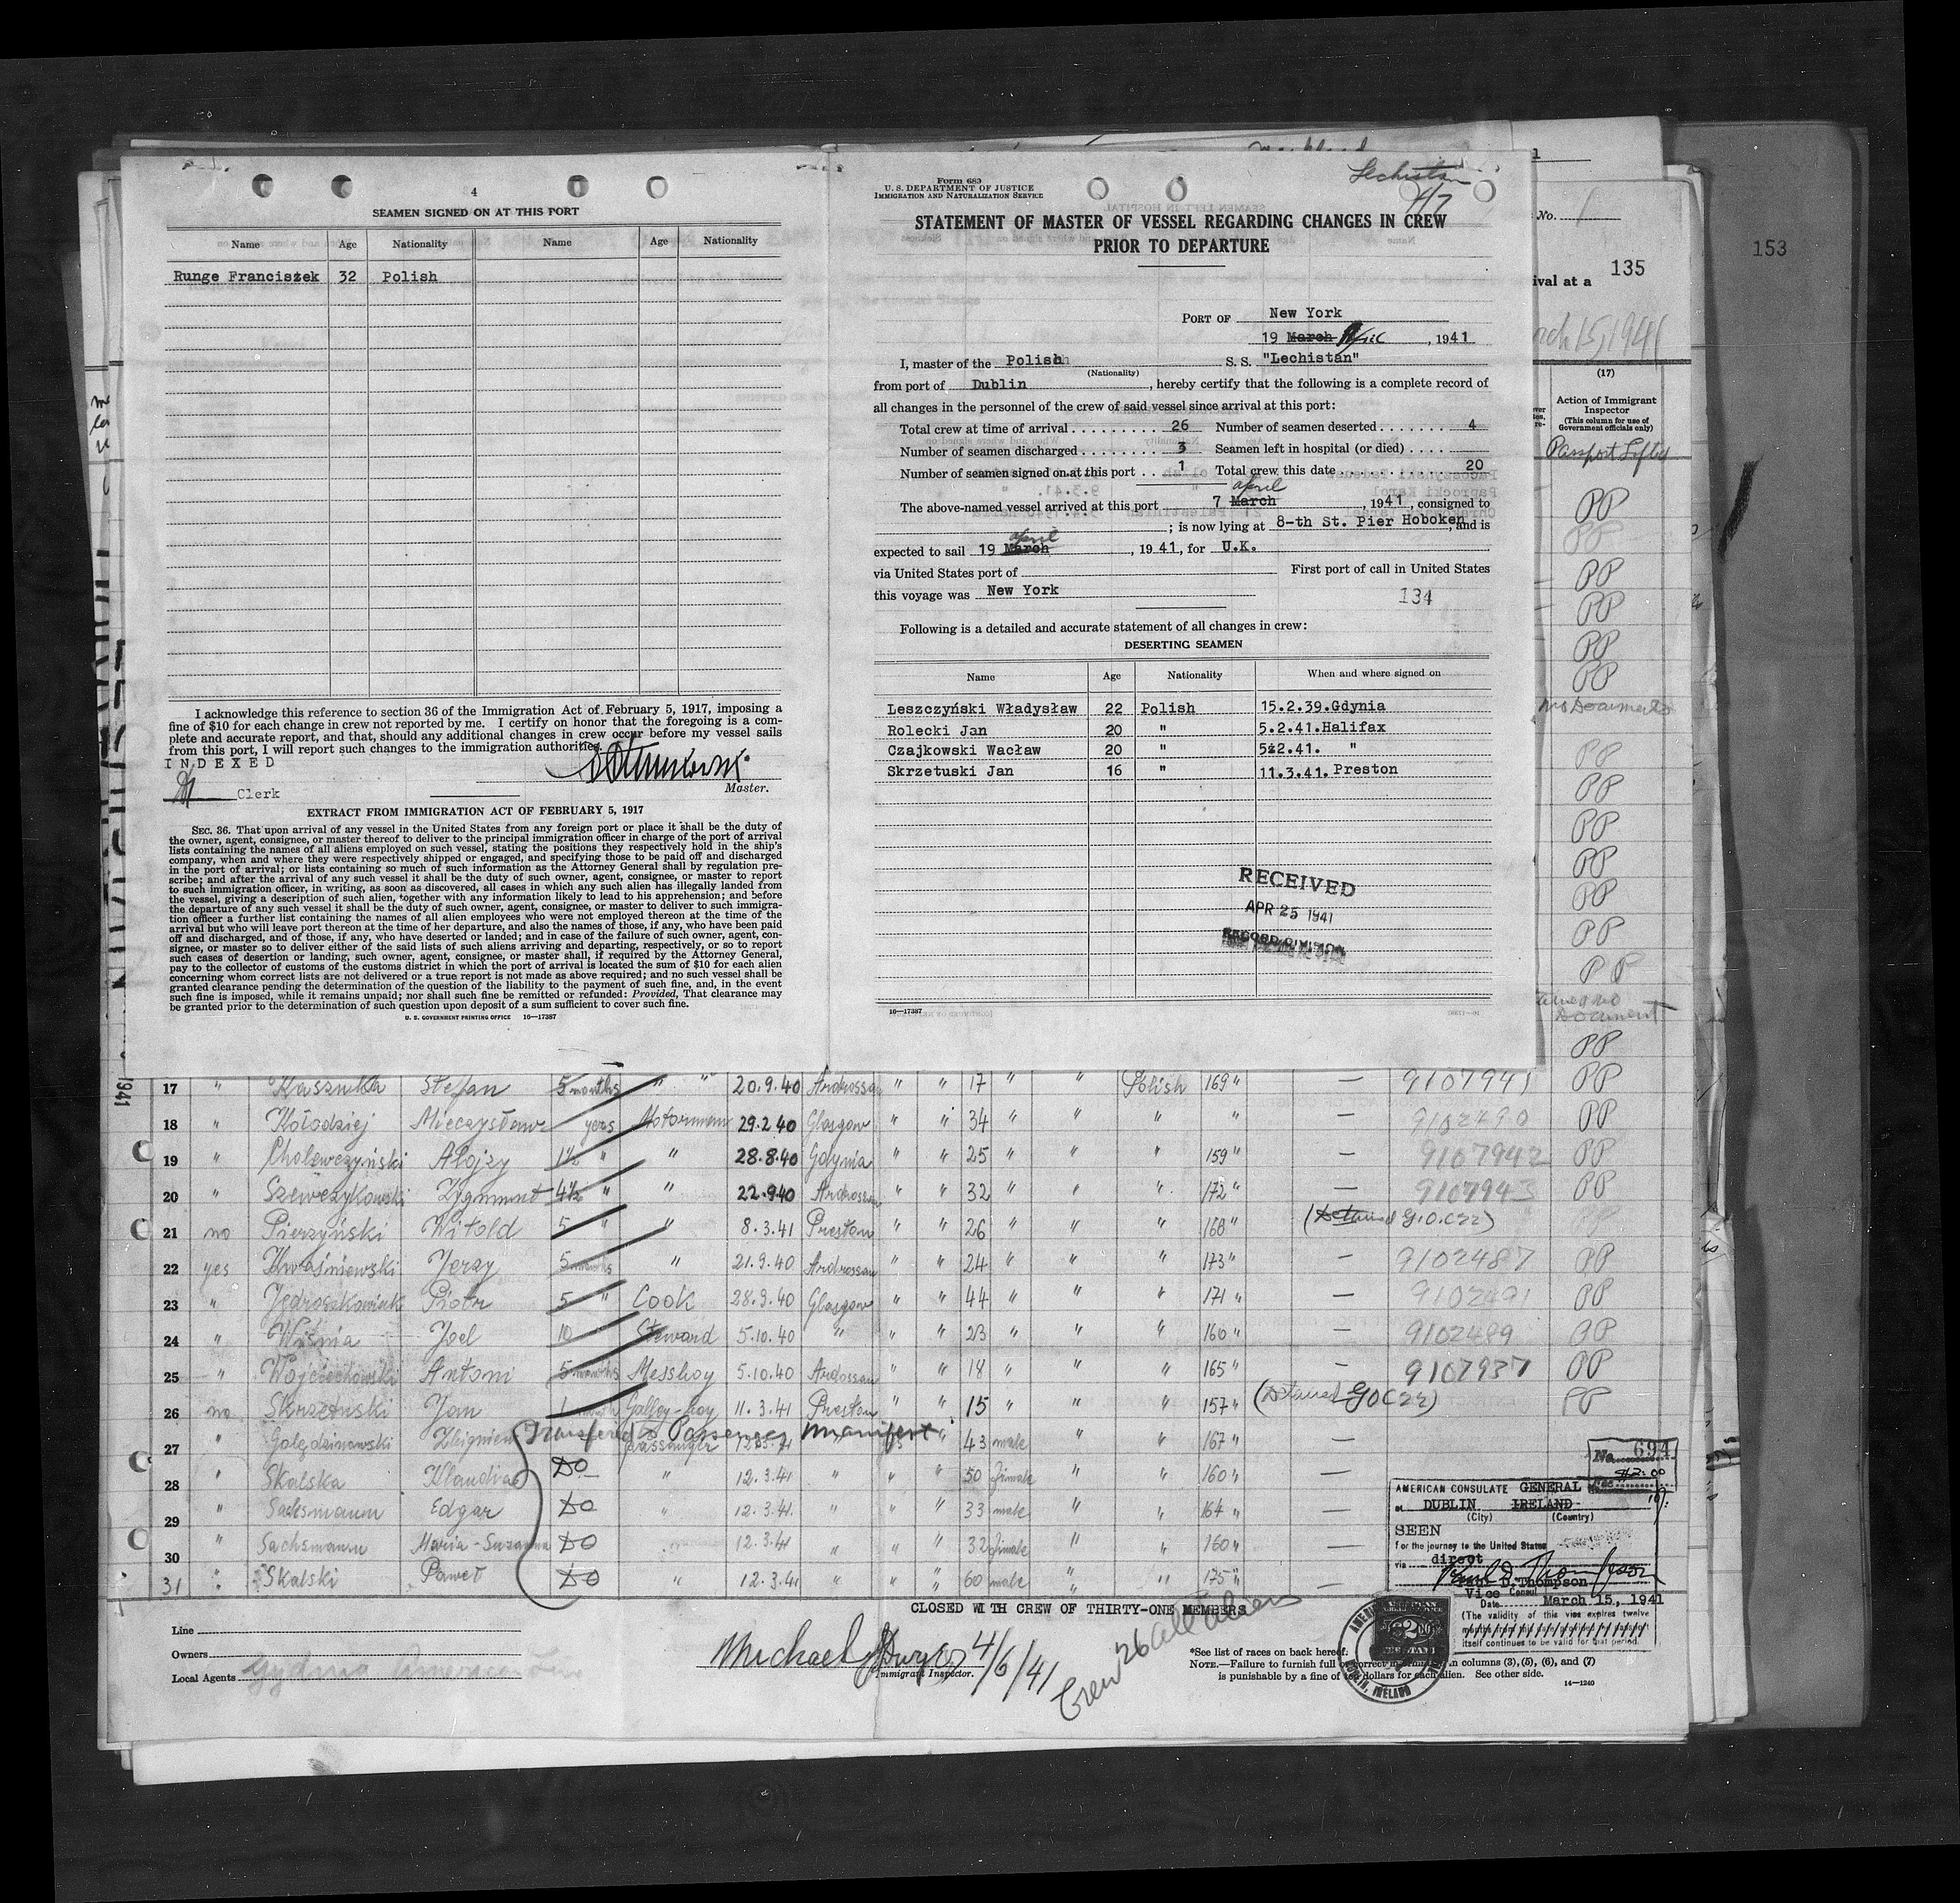 4
SEAMEN SIGNED ON AT THIS PORT
Name Age Nationality Name Age Nationality
Runge Franciszek 32 Polish
I acknowledge this reference to section 36 of the Immigration Act of February 5, 1917, imposing a
fine of $10 for each change in crew not reported by me. I certify on honor that the foregoing is a com-
plete and accurate report, and that, should any additional changes in crew occur before my vessel sails
from this port, I will report such changes to the immigration authorities.
INDEXED
Clerk
Master.
EXTRACT FROM IMMIGRATION ACT OF FEBRUARY 5, 1917
SEC. 36. That upon arrival of any vessel in the United States from any foreign port or place it shall be the duty of
the owner, agent, consignee, or master thereof to deliver to the principal immigration officer in charge of the port of arrival
lists containing the names of all aliens employed on such vessel, stating the positions they respectively hold in the ship's
company, when and where they were respectively shipped or engaged, and specifying those to be paid off and discharged
in the port of arrival; or lists containing so much of such information as the Attorney General shall by regulation pre-
scribe; and after the arrival of any such vessel it shall be the duty of such owner, agent, consignee, or master to report
to such immigration officer, in writing, as soon as discovered, all cases in which any such alien has illegally landed from
the vessel, giving a description of such alien, together with any information likely to lead to his apprehension; and before
the departure of any such vessel it shall be the duty of such owner, agent, consignee, or master to deliver to such immigra-
tion officer a further list containing the names of all alien employees who were not employed thereon at the time of the
arrival but who will leave port thereon at the time of her departure, and also the names of those, if any, who have been paid
off and discharged, and of those, if any, who have deserted or landed; and in case of the failure of such owner, agent, con-
signee, or master so to deliver either of the said lists of such aliens arriving and departing, respectively, or so to report
such cases of desertion or landing, such owner, agent, consignee, or master shall, if required by the Attorney General,
pay to the collector of customs of the customs district in which the port of arrival is located the sum of $10 for each alien
concerning whom correct lists are not delivered or a true report is not made as above required; and no such vessel shall be
granted clearance pending the determination of the question of the liability to the payment of such fine, and, in the event
such fine is imposed, while it remains unpaid; nor shall such fine be remitted or refunded: Provided, That clearance may
be granted prior to the determination of such question upon deposit of a sum sufficient to cover such fine.
U. S. GOVERNMENT PRINTING OFFICE 16—17387
Lechistan
4/7
Form 689
U. S. DEPARTMENT OF JUSTICE
IMMIGRATION AND NATURALIZATION SERVICE
STATEMENT OF MASTER OF VESSEL REGARDING CHANGES IN CREW
PRIOR TO DEPARTURE
PORT OF New York
19 March April, 1941
I, master of the Polish S. S. "Lechistan"
(Nationality)
from port of Dublin, hereby certify that the following is a complete record of
all changes in the personnel of the crew of said vessel since arrival at this port:
Total crew at time of arrival 26 Number of seamen deserted 4
Number of seamen discharged 3 Seamen left in hospital (or died)
Number of seamen signed on at this port 1 Total crew this date 20
april
The above-named vessel arrived at this port 7 March, 1941, consigned to
; is now lying at 8-th St. Pier Hoboken, and is
april
expected to sail 19 March, 1941, for U.K.
via United States port of First port of call in United States
this voyage was New York
134
Following is a detailed and accurate statement of all changes in crew:
DESERTING SEAMEN
Name Age Nationality When and where signed on
Leszczyński Władysław 22 Polish 15.2.39.Gdynia
Rolecki Jan 20 " 5.2.41.Halifax
Czajkowski Wacław 20 " 5.2.41. "
Skrzetuski Jan 16 " 11.3.41. Preston
RECEIVED
APR 25 1941
RECORD DIVISION
16—17387
No. 1
153
135
ival at a
March 15, 1941
(17)
Action of Immigrant
Inspector
(This column for use of
Government officials only)
Passport Lifted
PP
PP
PP
PP
PP
PP
No Documents
PP
PP
PP
PP
PP
PP
PP
Document
PP
17 " Kasznika Stefan 5 months " " 20.9.40 Ardrossan " " 17 " " Polish 169 " — 9107941 PP
18 " Kołodziej Mieczysław yers Motormen 29.2.40 Glasgow " " 34 " " " " — 9102490 PP
19 " Cholewczyński Alojzy 1½ " " 28.8.40 Gdynia " " 25 " " " 159 " — 9107942 PP
20 " Szewczykowski Zygmunt 4½ " " 22.9.40 Ardrossan " " 32 " " " 172 " — 9107943 PP
21 no Pierzyński Witold 5 " " 8.3.41 Preston " " 26 " " " 168 " (Detained G.O.C22) PP
22 yes Kwaśniewski Jerzy 5 months " 21.9.40 Ardrossan " " 24 " " " 173 " — 9102487 PP
23 " Jędroszkowiak Piotr 5 " Cook 28.9.40 Glasgow " " 44 " " " 171 " — 9102491 PP
24 " Wiśnia Joel 10 Steward 5.10.40 " " " 23 " " " 160 " — 9102489 PP
25 " Wojciechowski Antoni 5 months Messboy 5.10.40 Ardossan " " 18 " " " 165 " — 9107937 PP
26 no Skrzetuski Jan 1 month Galley-boy 11.3.41 Preston " " 15 " " " 157 " (Detained GOC22) PP
Transfered to Passenger manifest
27 " Golędzinowski Zbigniew passanger " 43 male " " 167 " —
28 " Skalska Klaudia DO " 12.3.41 " " " 50 female " " 160 " —
29 " Sachsmann Edgar DO " 12.3.41. " " " 33 male " " 164 " —
30 " Sachsmann Maria-Suzanna DO " 12.3.41 " " " 32 female " " 160 " —
31 " Skalski Paweł DO " 12.3.41 " " " 60 male " " 175 " —
1941
CLOSED WITH CREW OF THIRTY-ONE MEMBERS
Line
Owners
Local Agents Gydnia America Line
Michael J Dwyer 4/6/41
Immigrant Inspector.
Crew 26 all Aliens
*See list of races on back hereof.
NOTE.—Failure to furnish full or correct information in columns (3), (5), (6), and (7)
is punishable by a fine of ten dollars for each alien. See other side.
14—1240
No. 694
$2.00
AMERICAN CONSULATE GENERAL
at DUBLIN IRELAND
(City) (Country)
SEEN
for the journey to the United States
via direct
Paul D. Thompson
Vice Consul
Date March 15, 1941
(The validity of this visa expires twelve
itself continues to be valid for that period.
DUBLIN, IRELAND